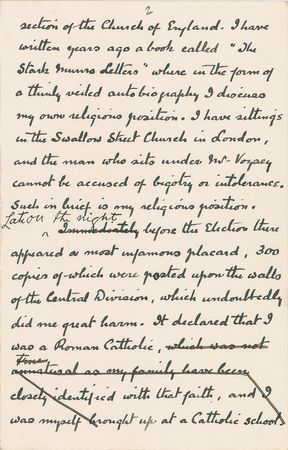 2
section of the Church of England. I have
written years ago a book called "The
Stark Munro Letters" where in the form of
a thinly veiled autobiography I discuss
my own religious position. I have sittings
in the Swallow Street Church in London,
and the man who sits under Mr Voysey
cannot be accused of bigotry or intolerance.
Such in brief is my religious position.
Late on the night
Immediately before the Election there
appeared a most infamous placard, 300
copies of which were posted upon the walls
of the Central Division, which undoubtedly
did me great harm. It declared that I
was a Roman Catholic, which was not
true
unnatural as my family have been
closely identified with that faith, and I
was myself brought up at a Catholic school